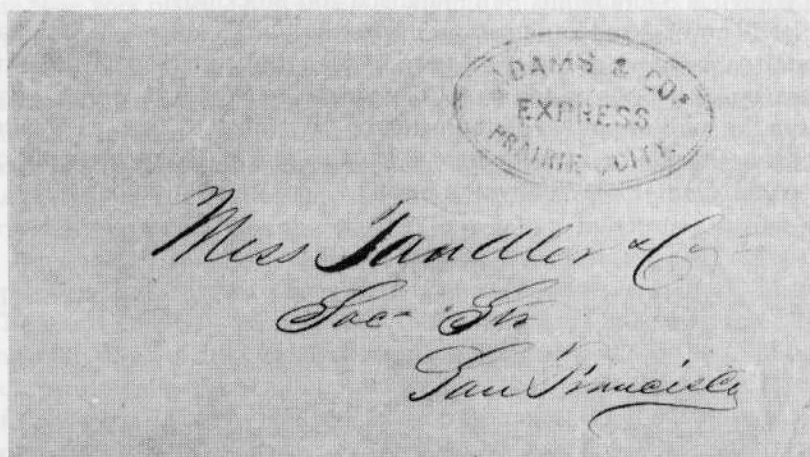 ADAMS & CO'S
EXPRESS
PRAIRIE CITY.
Mess Sandler & Co
Sac- Str
San Francisco